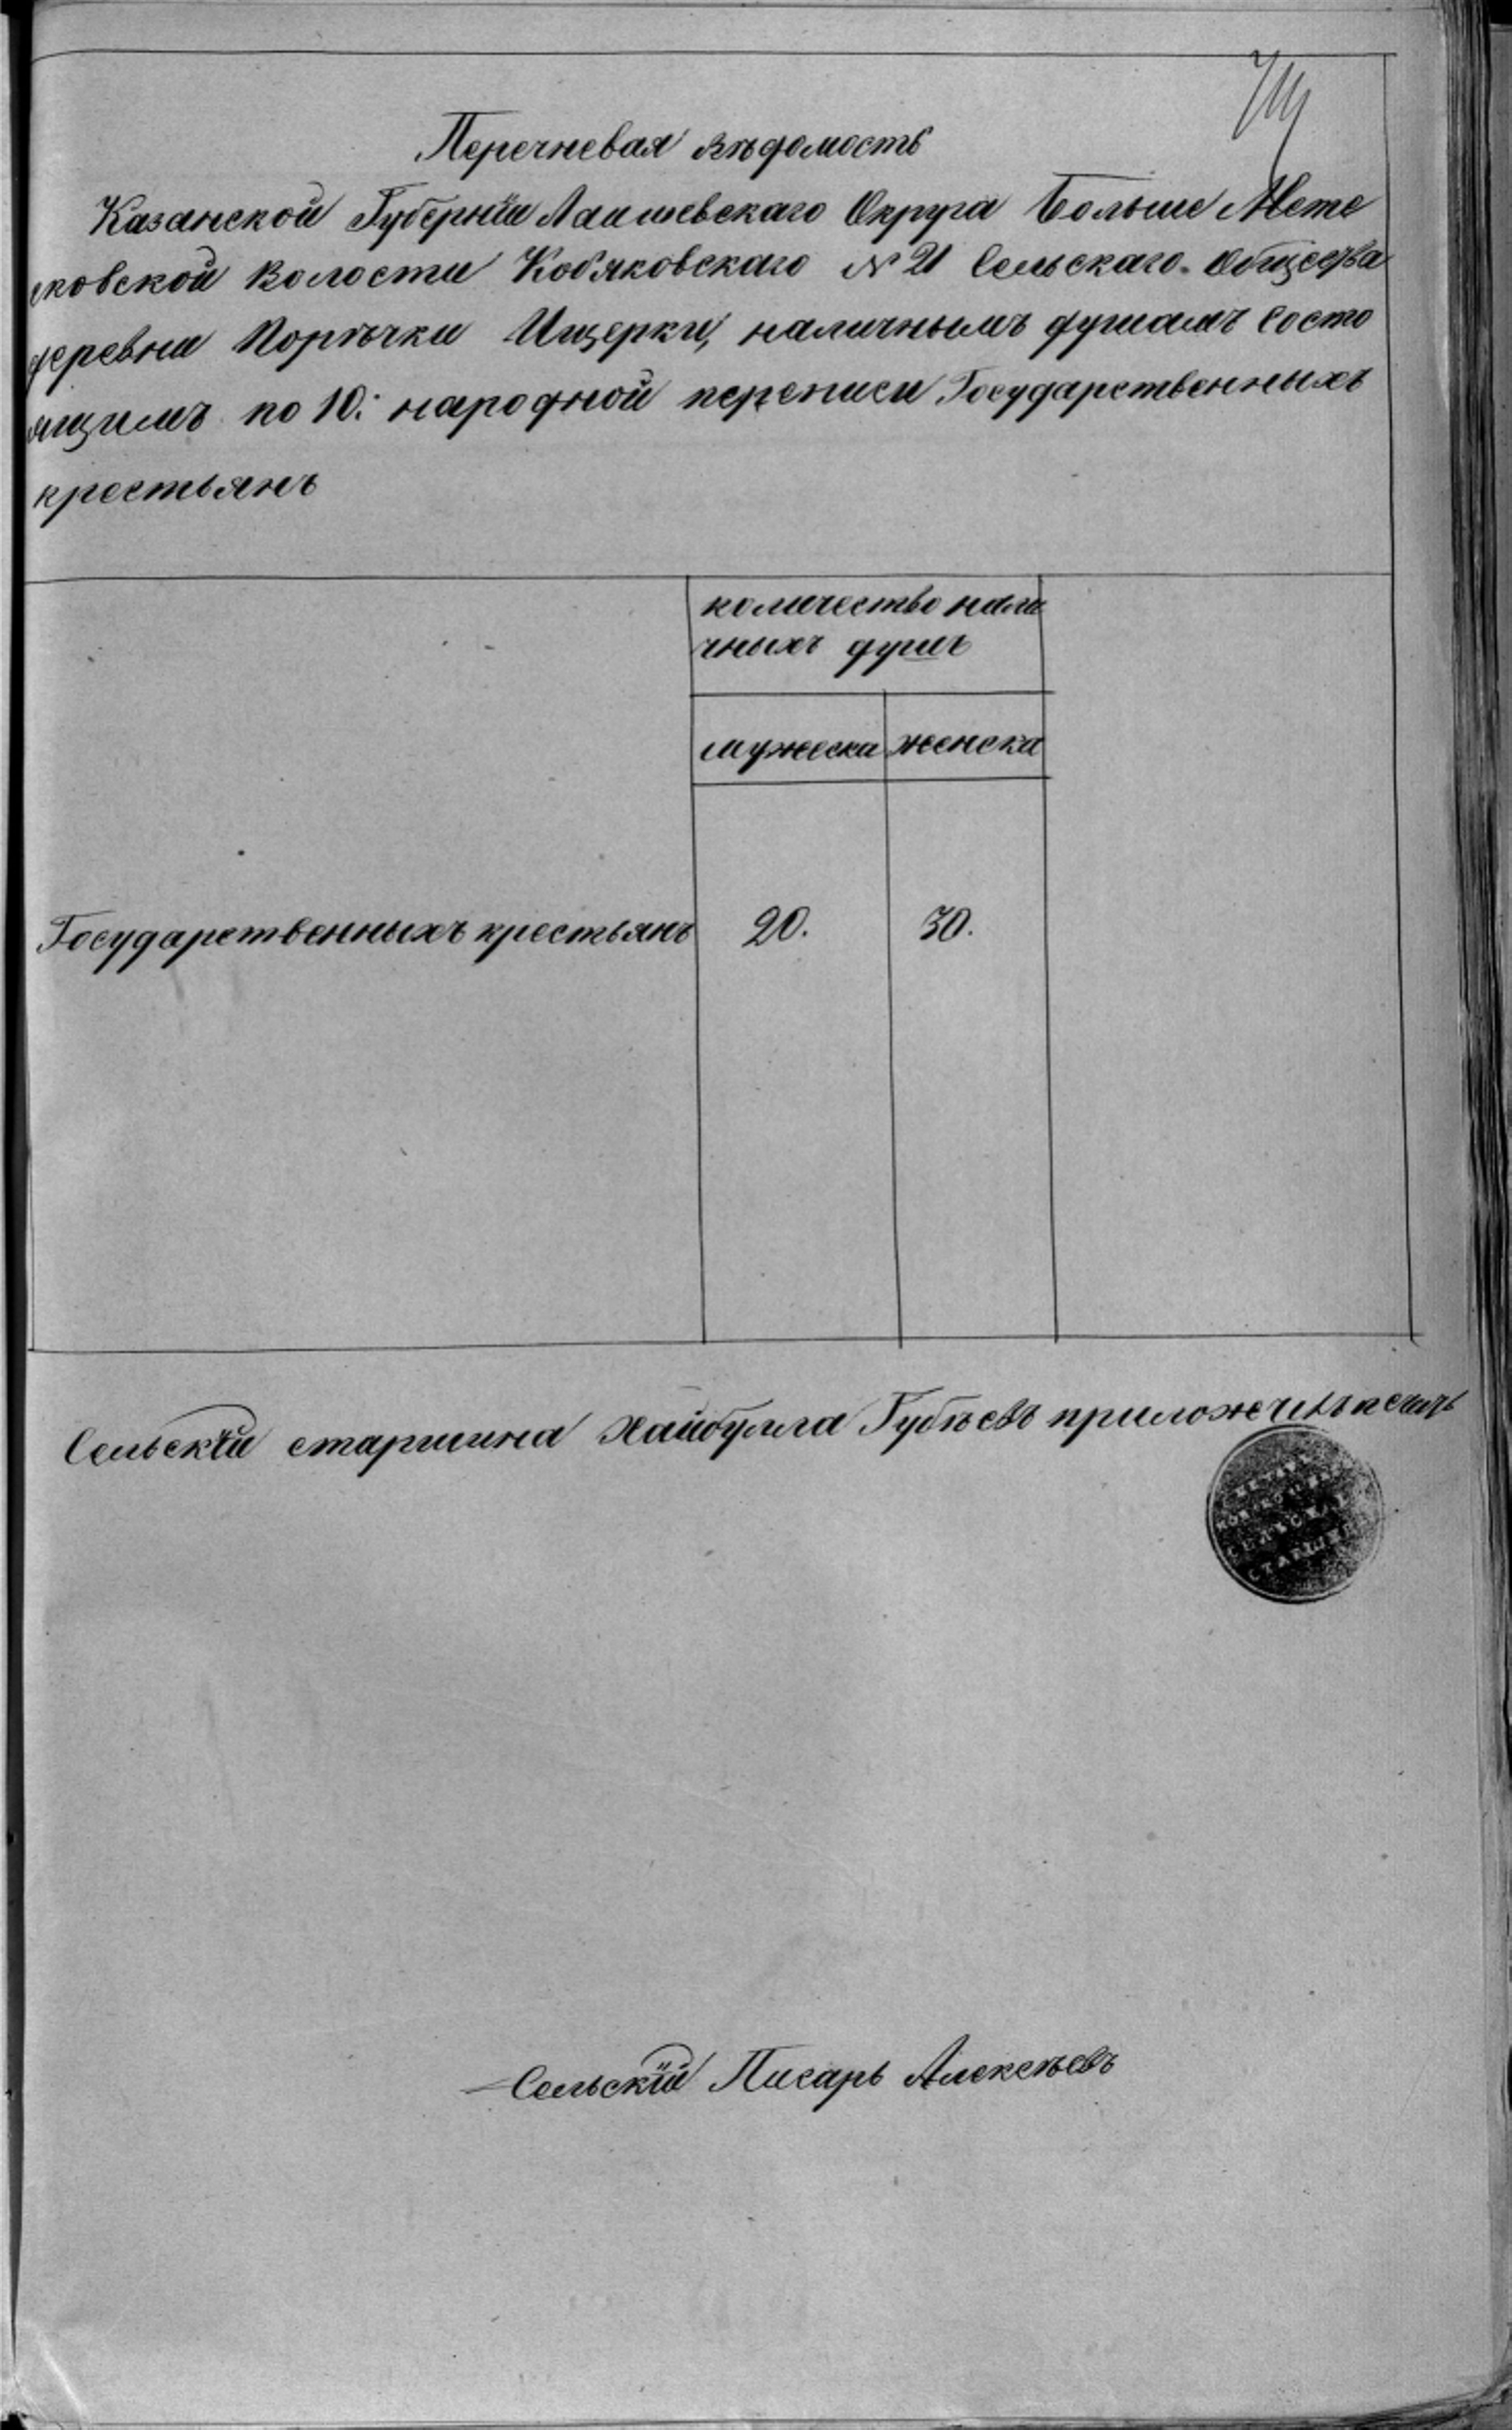 Перечневая вѣдомость
Казанской Губерніи Лаишевскаго Округа больше Мете
сковской волости Кобяковскаго № 21 Сельскаго Общества
деревни Порѣчки Ищерки, наличнымъ душамъ состо
ящимъ по 10й народной переписи Государственныхъ
крестьянъ
количество нали
чныхъ душъ
мужеска женска
Государственныхъ крестьянъ 20. 30.
Сельскій старшина Хайбулла Губѣевъ приложилъ печать
СЕЛЬСКАГ
СТАРШИН
Сельскій Писарь Алексѣевъ